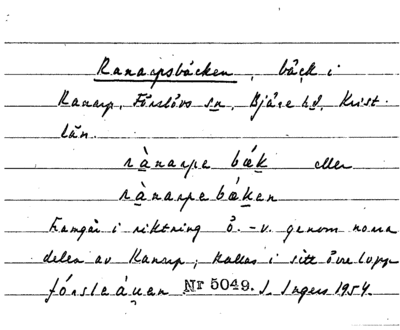 Ranarpsbäcken, bäck i
Ranarp, Förslövs sn, Bjäre hd, Krist.
län.
rànarpe bǽk eller
rànarpebǽken
Framgår i riktning ö. - v. genom norra
delen av Ranarp; kallas i sitt övre lopp
fórslaáuan Nr 5049. I. Ingers 1954.